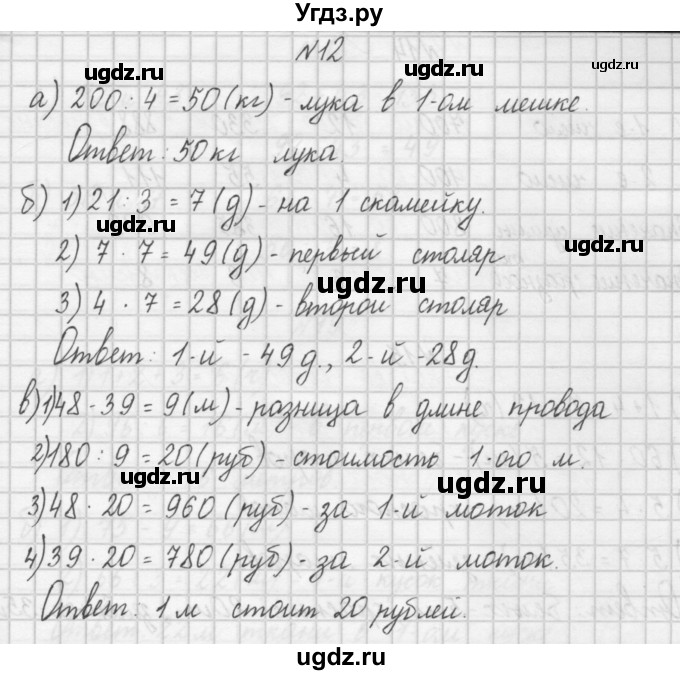 Угдз.ру
№12
ugdz.ru ugdz.ru
а) 200 : 4 = 50 (кг) - лука в 1-ом мешке.
Ответ: 50 кг лука.
ugdz.ru
б) 1) 21 : 3 = 7 (д) - на 1 скамейку.
ugdz.ru
2) 7 · 7 = 49 (д) - первый столяр
ugdz.ru
ugdz.ru
3) 4 · 7 = 28 (д) - второй столяр
Ответ: 1-й - 49 д., 2-й - 28 д.
ugdz.ru
в) 1) 48 - 39 = 9 (м) - разница в длине провода
ugdz.ru
2) 180 : 9 = 20 (руб) - стоимость 1-ого м.
ugdz.ru
3) 48 · 20 = 960 (руб) - за 1-й моток
ugdz.ru
4) 39 · 20 = 780 (руб) - за 2-й моток.
ugdz.ru
Ответ: 1 м стоит 20 рублей.
ugdz.ru
ugdz.ru